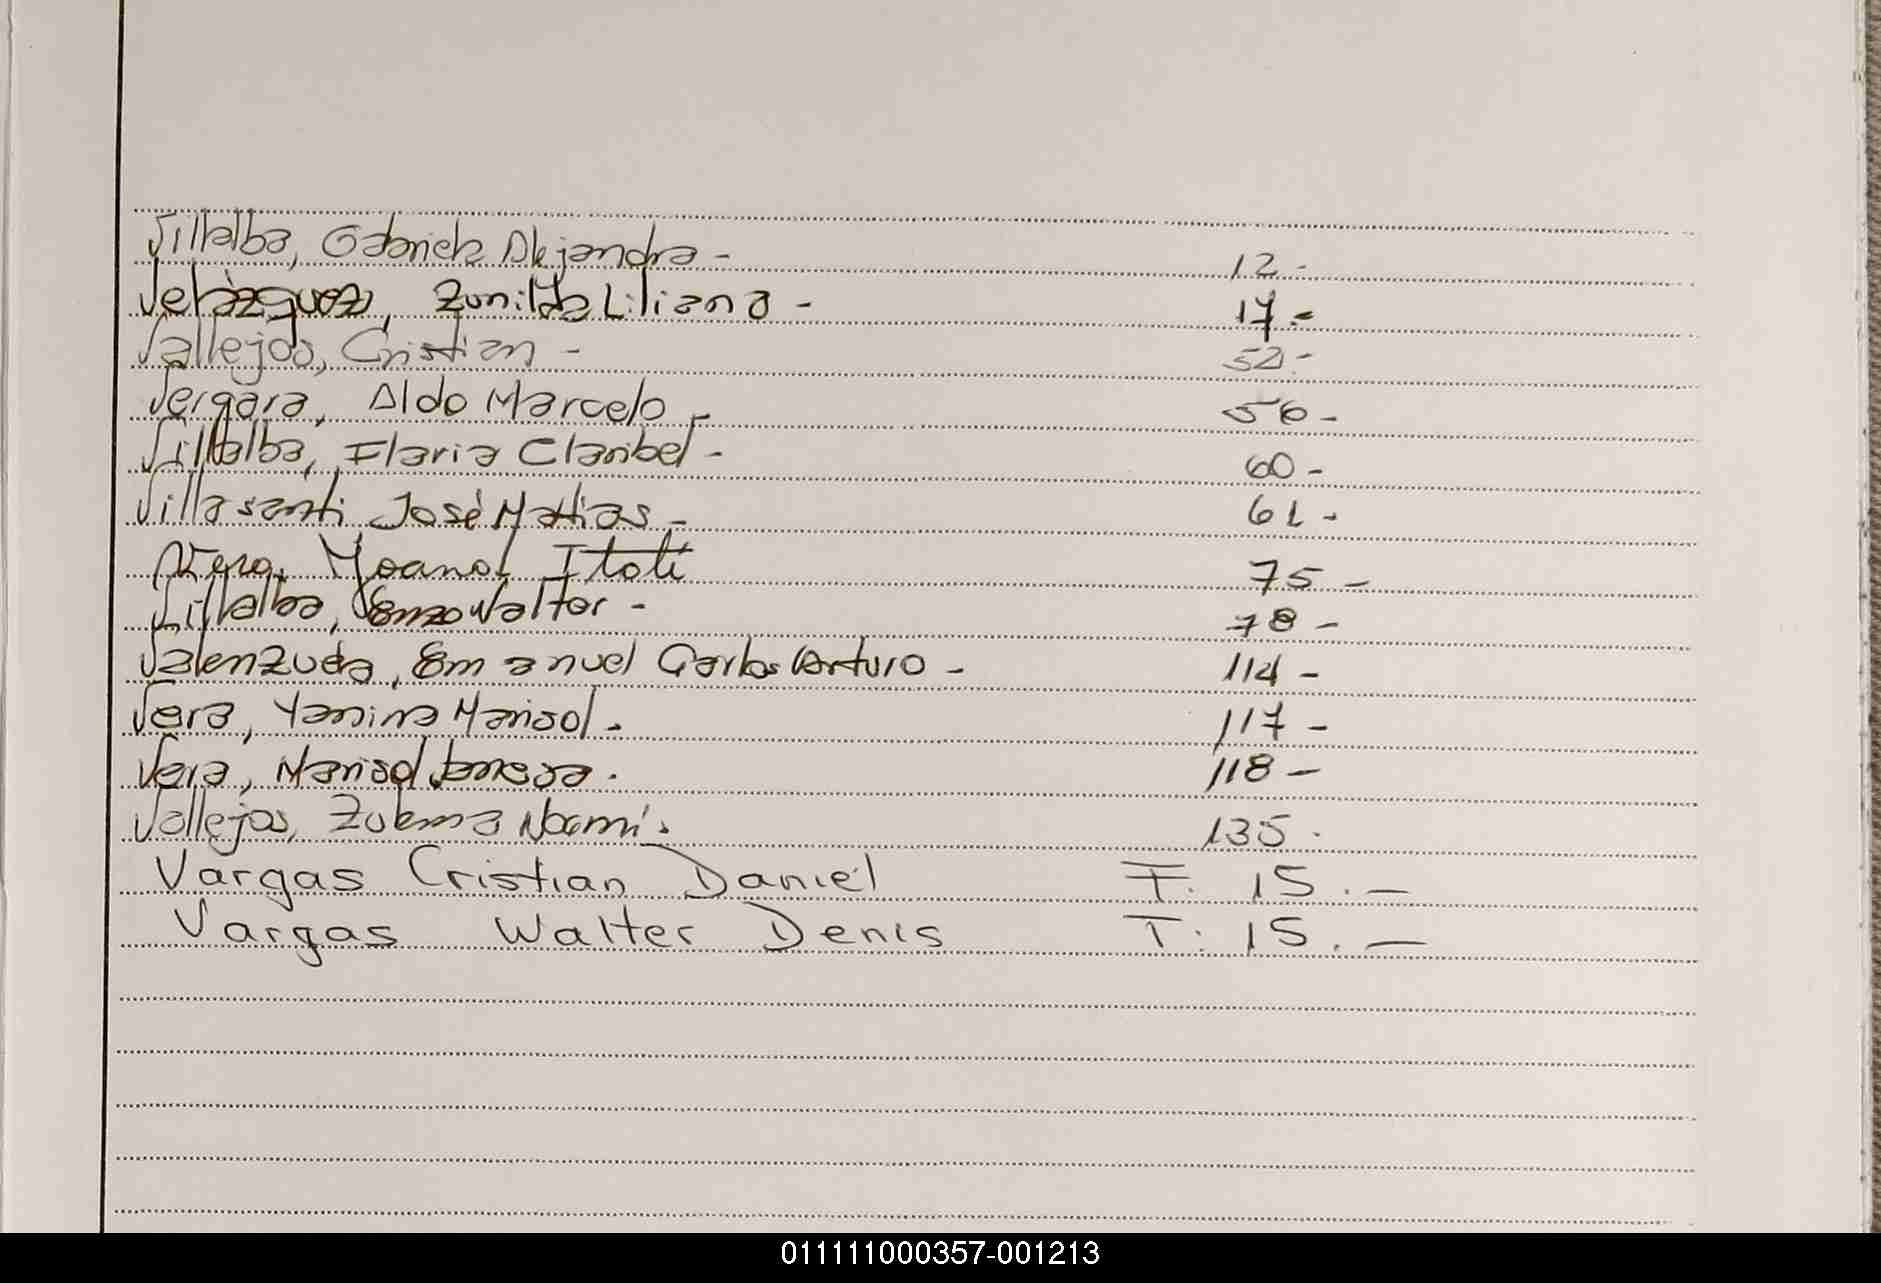 Villalba, Gabriela Alejandra - 12 -
Velázquez, Zunilda Liliana - 17 -
Vallejos, Cristian - 52 -
Vergara, Aldo Marcelo - 56 -
Villalba, Flavia Claribel - 60 -
Villasanti José Matías - 61 -
Vera, Itatí 75 -
Villalba, Enzo Walter - 78 -
Valenzuela, Emanuel Carlos Arturo - 114 -
Vera, Yanina Marisol. 117 -
Vera, Marisol Vanesa. 118 -
Vallejos, Zulema Noemí. 135.
Vargas Cristian Daniel T. 15. -
Vargas Walter Denis T. 15. -
011111000357-001213